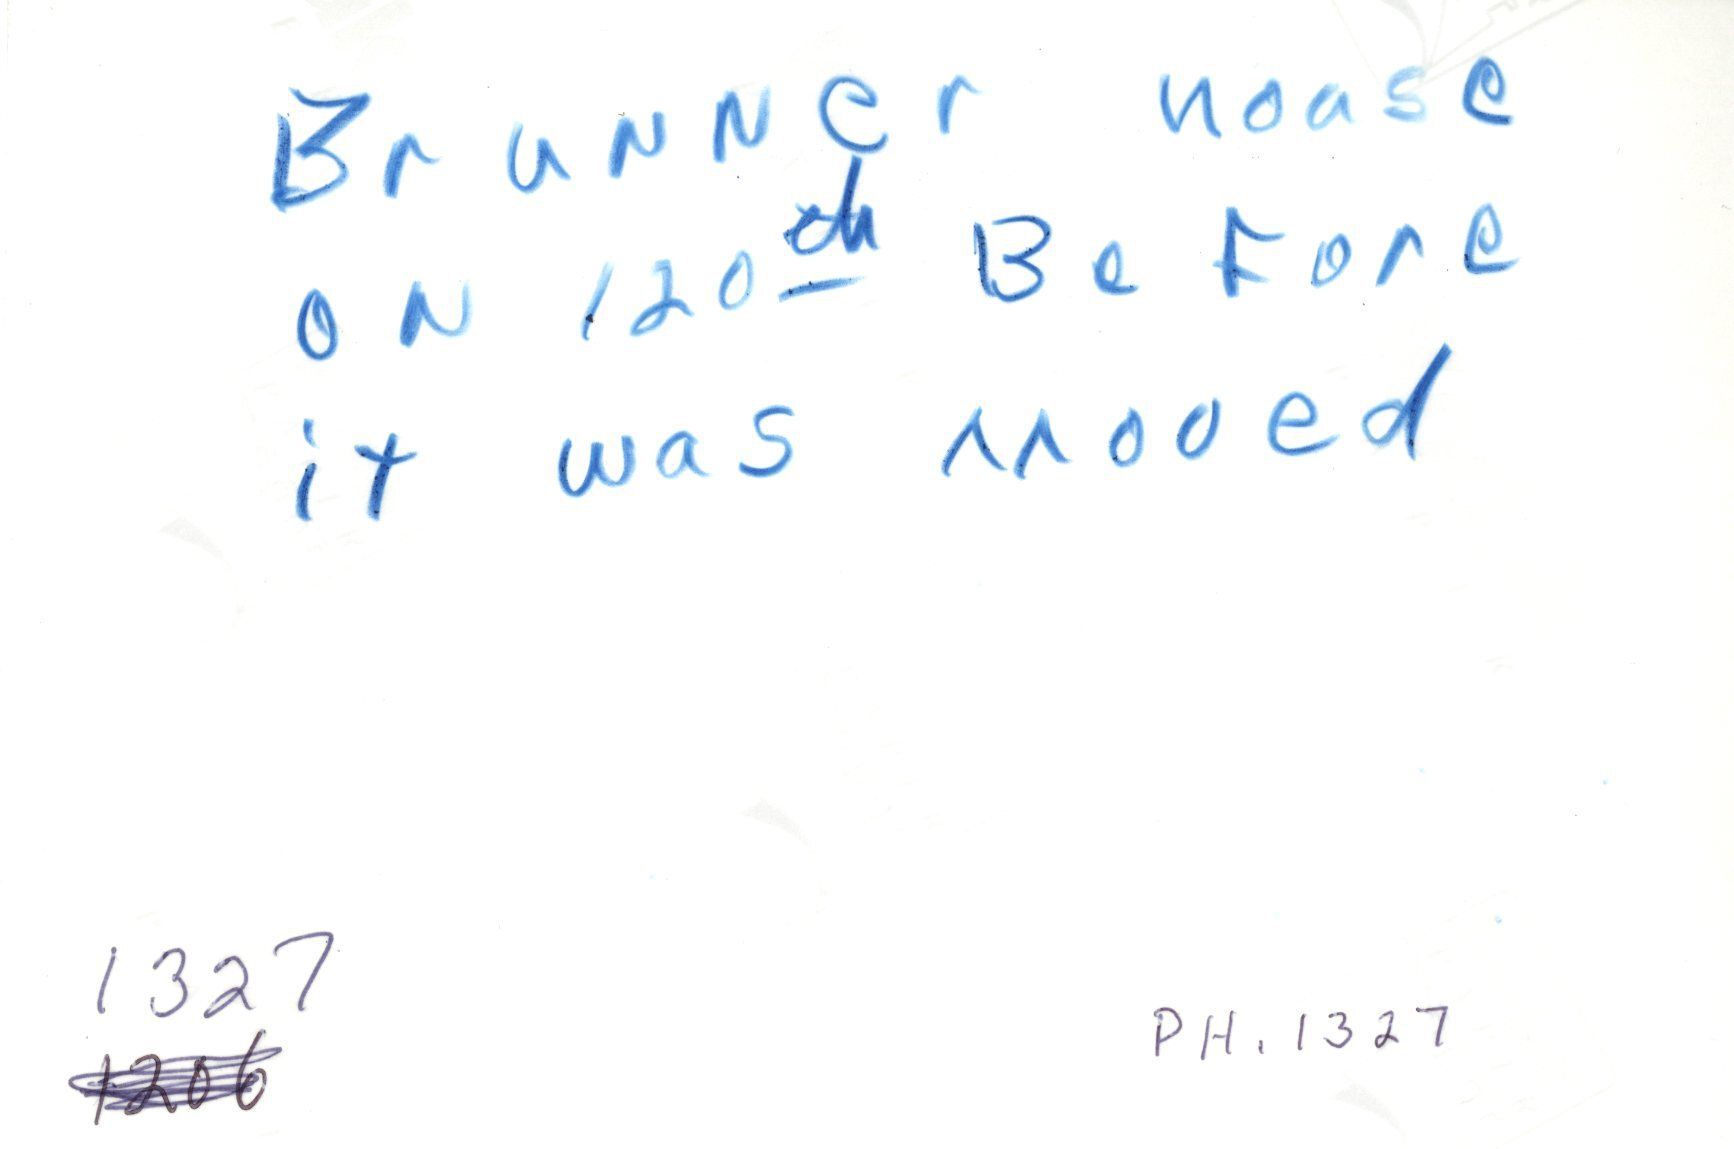 Brunner house
on 120th Before
it was moved
1327
1206
PH. 1327